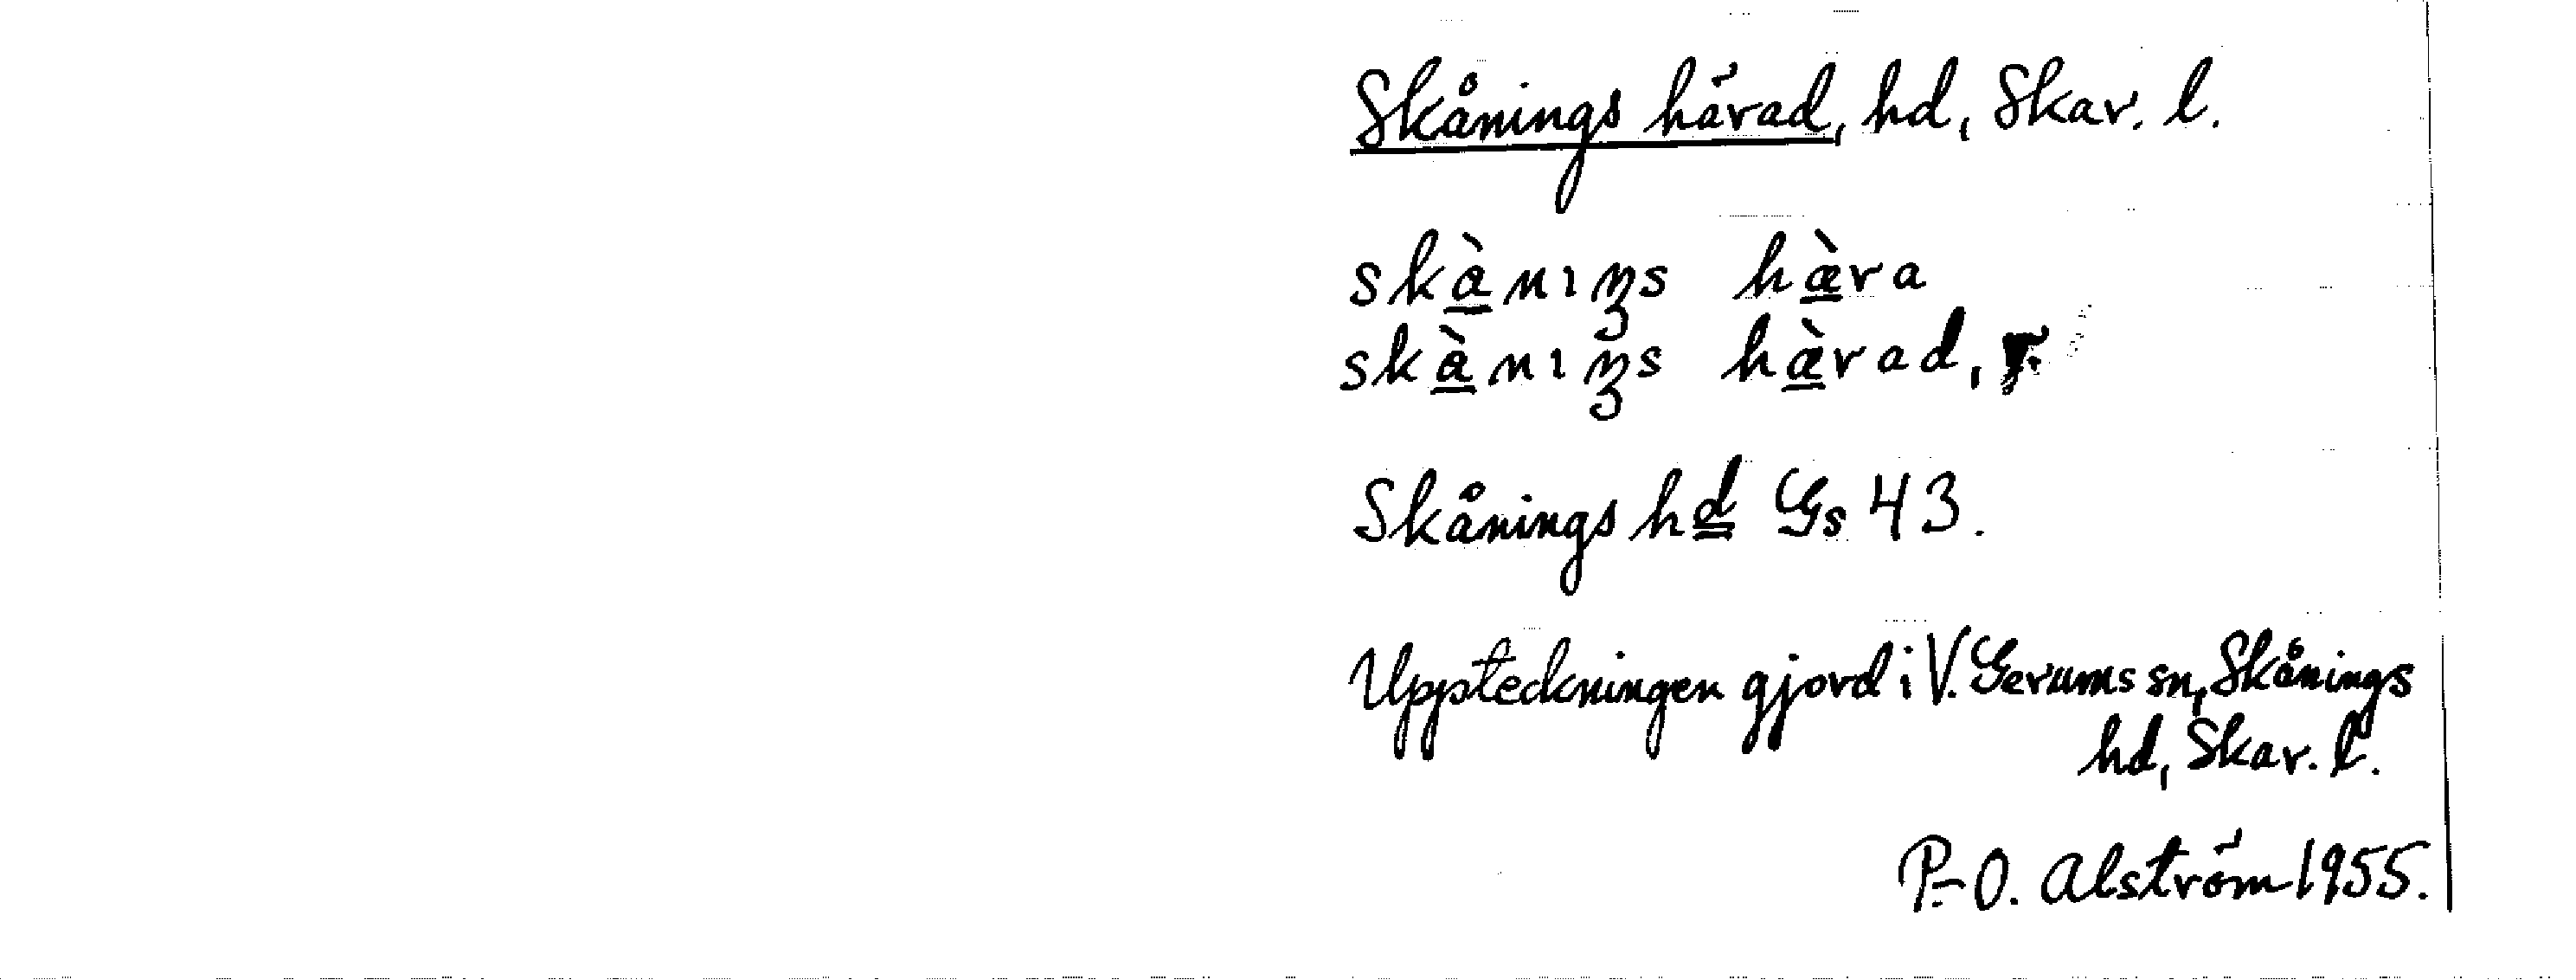 Skånings härad, hd, Skar. l.
skànıŋs hæ̀ra
skànıŋs hæ̀rad,
Skånings hd Gs 43.
Uppteckningen gjord i V. Gerums sn, Skånings
hd, Skar. l.
P.-O. Alström 1955.